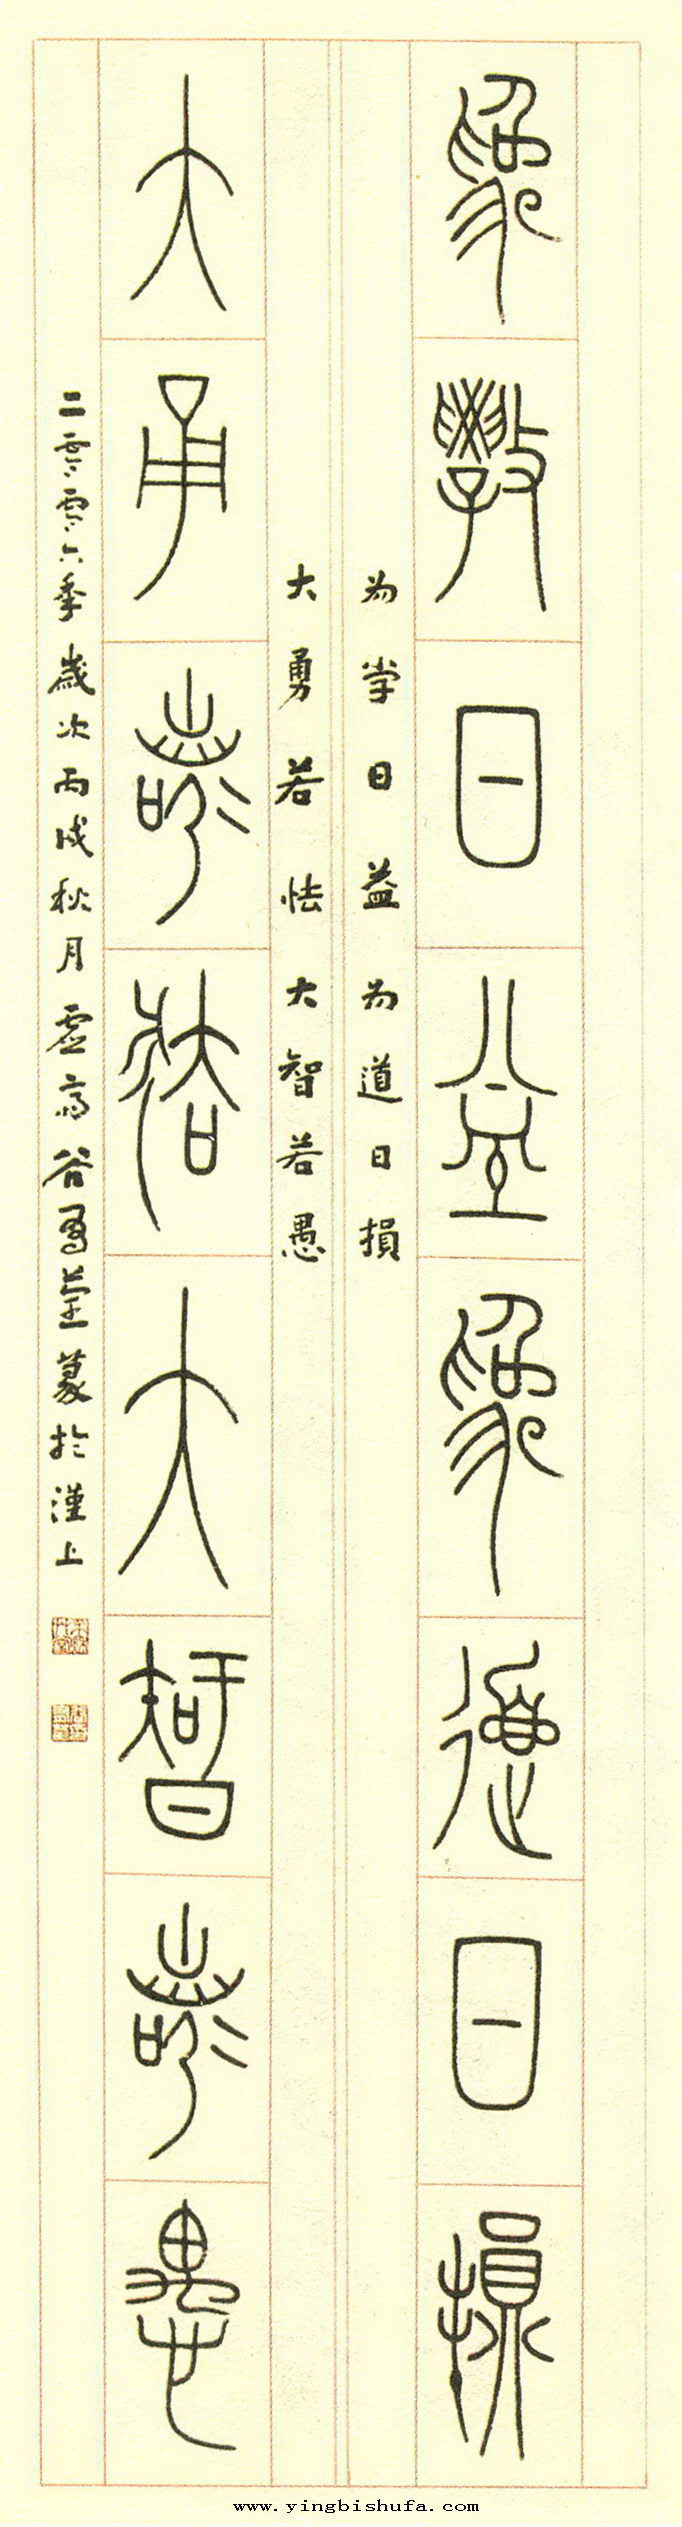 為學日益為道日損
为学日益为道日損
大勇若怯大智若愚
大勇若怯大智若愚
二零零六季歲次丙戌秋月虛高谷
篆於漢上
www.yingbishufa.com